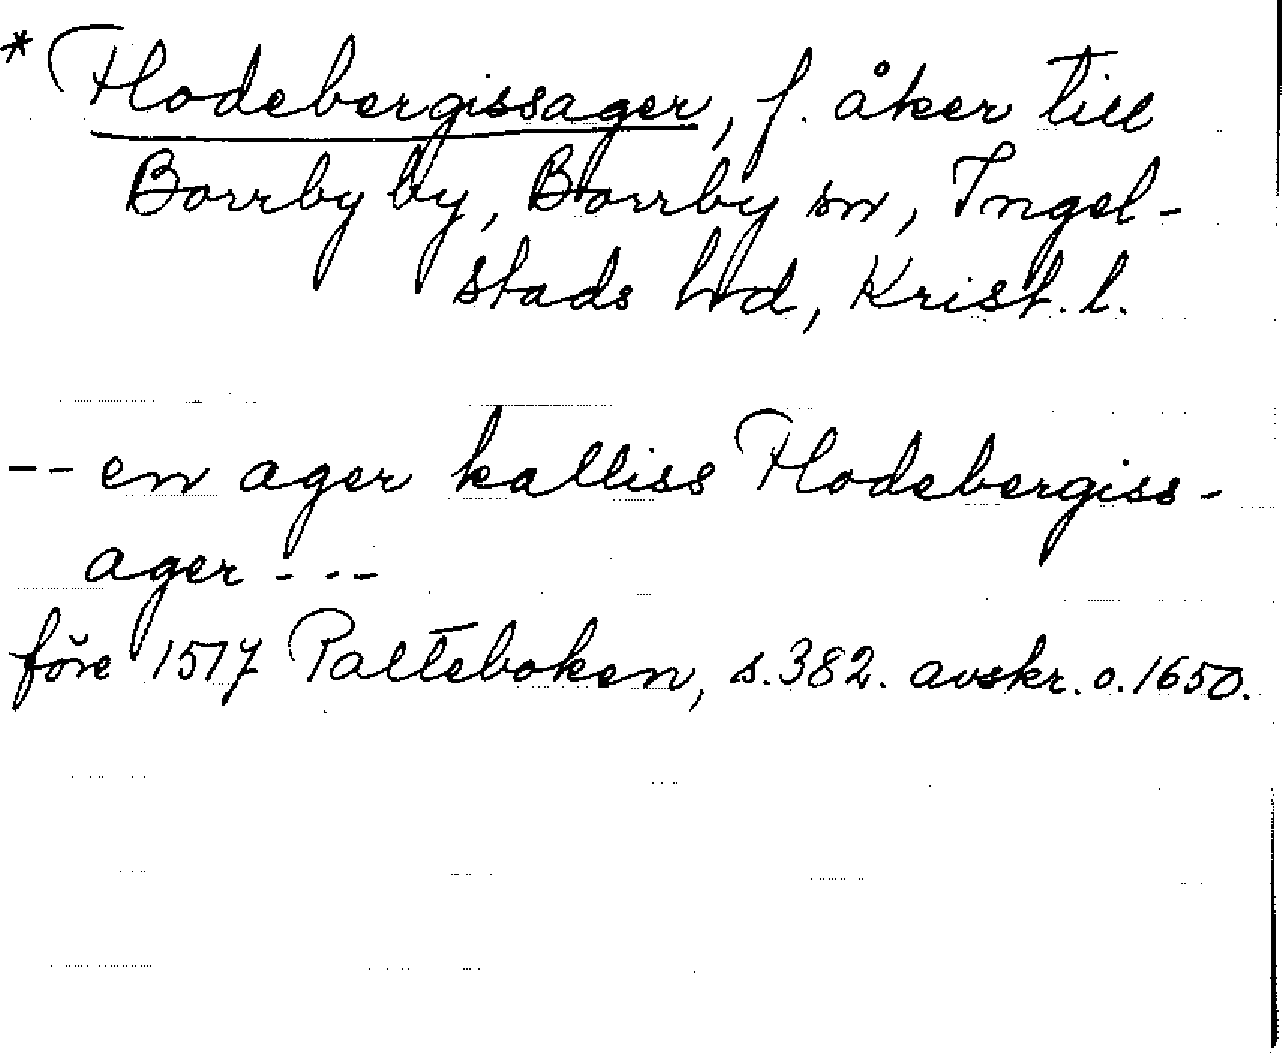 * Hodebergissager, f. åker till
Borrby by, Borrby sn, Ingel-
stads hd, Krist. l.
-- en ager kalliss Hodebergiss-
ager - - -
före 1517 Palteboken, s. 382. avskr. o. 1650.